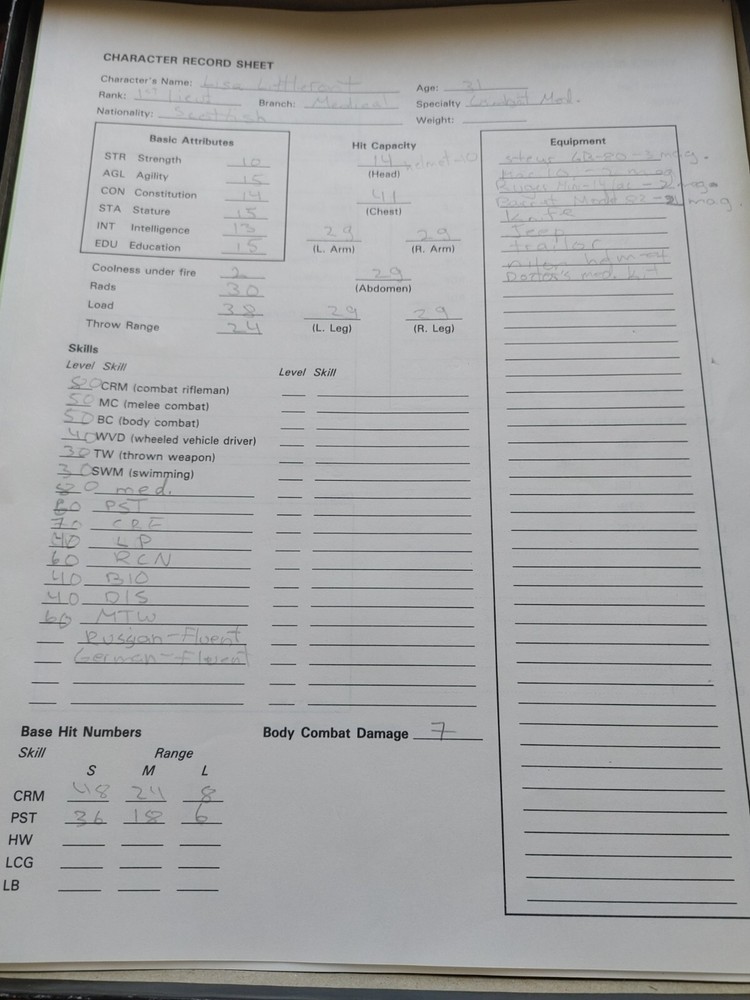 CHARACTER RECORD SHEET
Character's Name: Lisa
Age: 31
Rank: 1st Lieut
Branch: Medical
Specialty Combat Med.
Nationality: Scottish
Weight:
Basic Attributes
STR Strength 10
AGL Agility 15
CON Constitution 14
STA Stature 15
INT Intelligence 13
EDU Education 15
Coolness under fire 2
Rads 30
Load 38
Throw Range 24
Hit Capacity
14 helmet
(Head)
41
(Chest)
29 29
(L. Arm) (R. Arm)
29
(Abdomen)
29 29
(L. Leg) (R. Leg)
Equipment
mag.
Ruger Min-14
mag.
Knife
Jeep
trailor
Doctor's med. kit
Skills
Level Skill
Level Skill
80 CRM (combat rifleman)
50 MC (melee combat)
50 BC (body combat)
40 WVD (wheeled vehicle driver)
30 TW (thrown weapon)
30 SWM (swimming)
80 med.
60 PST
70
40 LP
60 RCN
40 BIO
40 DIS
60 MTW
Russian-Fluent
German-Fluent
Base Hit Numbers
Skill Range
S M L
CRM 48 24 8
PST 36 18 6
HW
LCG
LB
Body Combat Damage 7